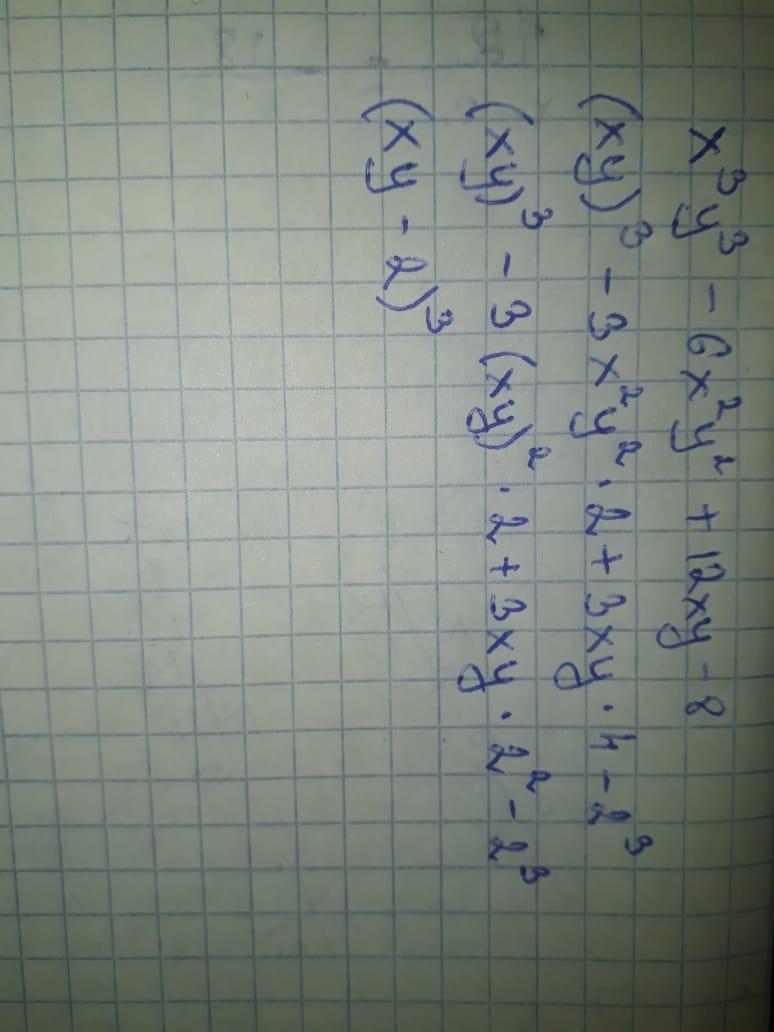 x³y³ - 6x²y² + 12xy - 8
(xy)³ - 3x²y² · 2 + 3xy · 4 - 2³
(xy)³ - 3(xy)² · 2 + 3xy · 2² - 2³
(xy - 2)³